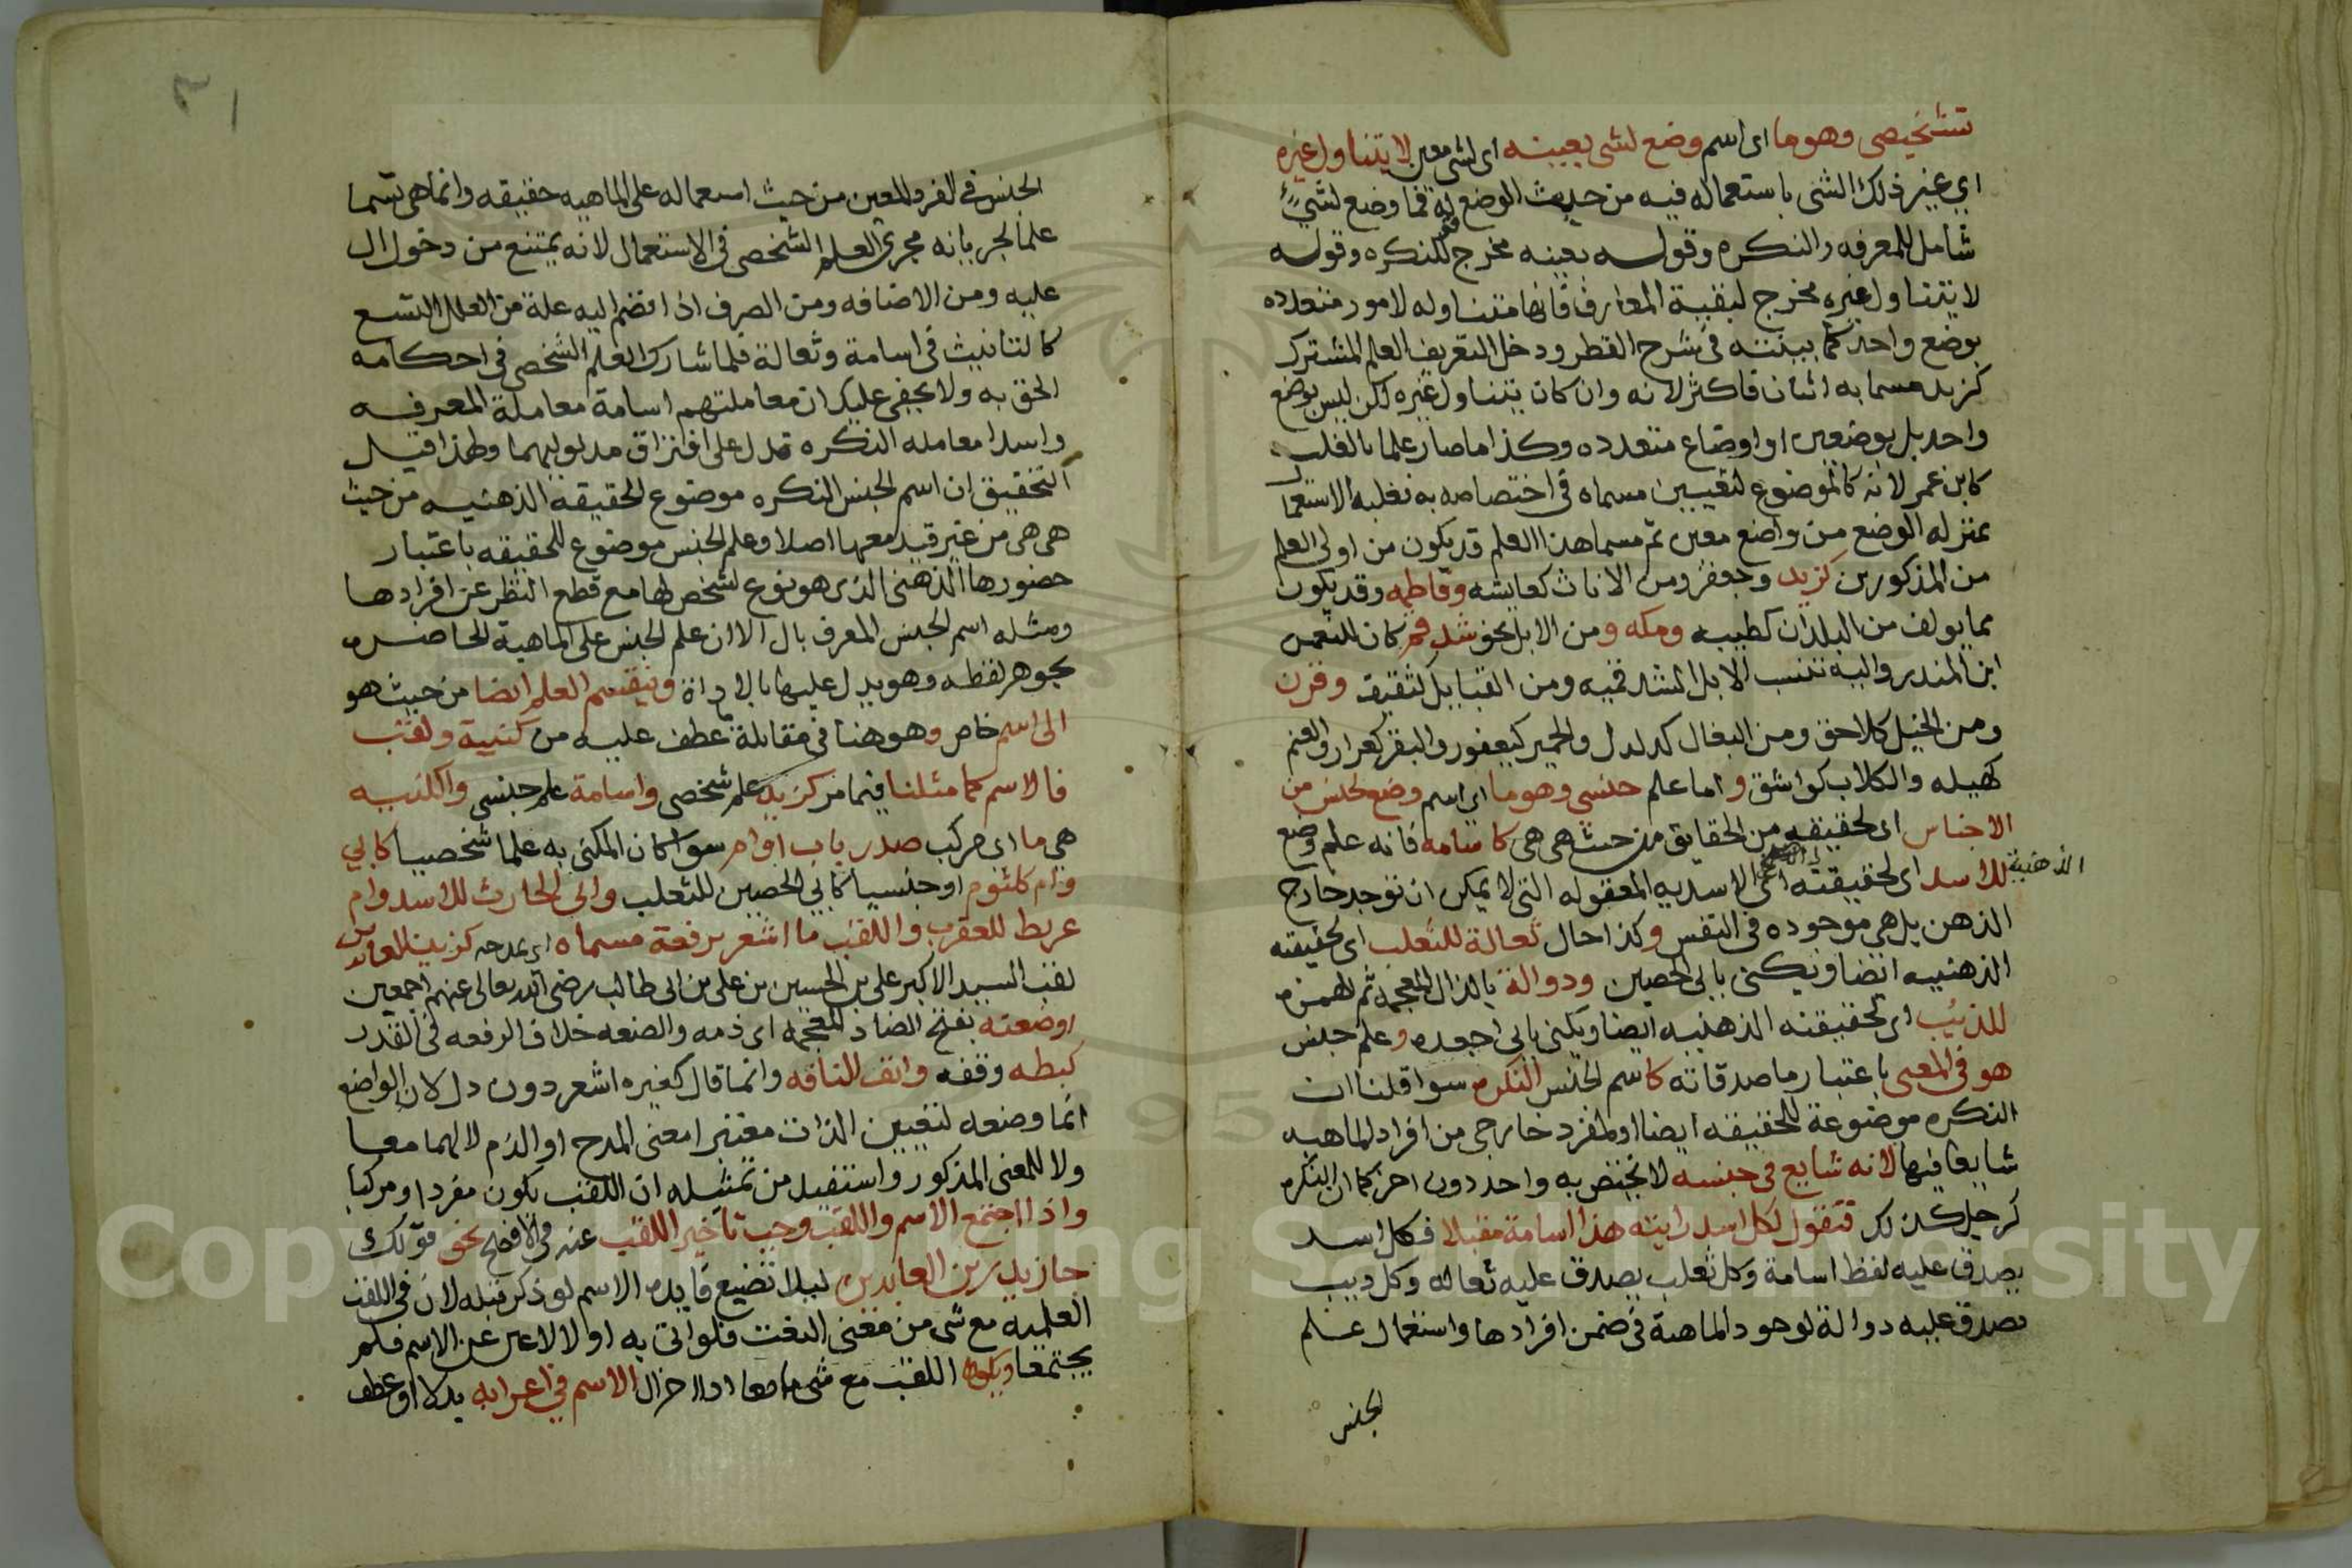 تشخيصي وهو ما اى اسم وضع لشى بعينه اى لشى معين لا يتناول غيره
اي غير ذلك الشى باستعماله فيه من حيث الوضع له فما وضع لشيء
شامل للمعرفه والنكره وقوله بعينه مخرج للنكره وقوله
لا يتناول غيره مخرج لبقية المعارف فانها متناوله لامور متعدده
بوضع واحد كما بينته فى شرح القطر ودخل التعريف العلم المشترك
كزيد مسما به اثنان فاكثر لانه وان كان يتناول غيره لكن ليس بوضع
واحد بل بوضعين او اوضاع متعدده وكذا ما صار علما بالغلب
كابن عمر لانه كالموضوع لتعيين مسماه فى اختصاصه به فغلبة الاستعما
بمنزله الوضع من واضع معين ثم مسما هذا العلم قد يكون من اولى العلم
من المذكورين كزيد وجعفر ومن الاناث كعايشه وفاطمه وقد يكون
مما يولف من البلدان كطيبه ومكه ومن الابل نحو شدقم كان للنعمن
ابن المنذر واليه تنسب الابل الشدقميه ومن القبايل كثقيف وقرن
ومن الخيل كلاحق ومن البغال كدلدل والحمير كيعفور والبقر كعرار والغنم
كهيله والكلاب كواشق و اما علم جنسي وهو ما اي اسم وضع لجنس من
الاجناس اى لحقيقه من الحقايق من حيث هى هى كاسامه فانه علم وضع
للاسد اى لحقيقته الذهنية اى الاسديه المعقوله التى لا يمكن ان توجد خارج
الذهن بل هى موجوده فى النفس وكذا حال ثعالة للثعلب اى لحقيقته
الذهنيه ايضا ويكنى بابى الحصين وذوالة بالذال المعجمه ثم الهمزه
للذئب اى لحقيقته الذهنيه ايضا ويكنى بابى اجعده وعلم جنس
هو فى المعنى باعتبار ما صدقاته كاسم الجنس النكره سوا قلنا ان
النكره موضوعة للحقيقه ايضا او لمفرد خارجى من افراد الماهيه
شايعا فيها لانه شايع فى جنسه لا يختص به واحد دون اخر كما ان النكره
كرجل كذلك فتقول لكل اسد رايته هذا اسامة مقبلا فكل اسد
يصدق عليه لفظ اسامة وكل ثعلب يصدق عليه ثعاله وكل ديب
يصدق عليه دوالة لوجود الماهية فى ضمن افرادها واستعمال علم
الجنس
الجنس فى الفرد المعين من حيث استعماله على الماهيه حقيقه وانما هى تسما
علما لجريانه مجرى العلم الشخصى فى الاستعمال لانه يمتنع من دخول ال
عليه ومن الاضافه ومن الصرف اذا انضم اليه علة من العلل التسع
كالتانيث فى اسامة وثعالة فلما شارك العلم الشخصى فى احكامه
الحق به ولا يخفى عليك ان معاملتهم اسامة معاملة المعرفه
واسدا معامله النكره تدل على افتراق مدلوليهما ولهذا قيل
التحقيق ان اسم الجنس النكره موضوع للحقيقة الذهنيه من حيث
هى هى من غير قيد معها اصلا وعلم الجنس موضوع للحقيقه باعتبار
حضورها الذهنى الذى هو نوع تشخص لها مع قطع النظر عن افرادها
ومثله اسم الجنس المعرف بال الا ان علم الجنس على الماهية الحاضره
بجوهر لفظه وهو يدل عليها بالاداة وينقسم العلم ايضا من حيث هو
الى اسم خاص وهو هنا فى مقابلة عطف عليه من كنية ولقب
فالاسم كما مثلنا فيما مر كزيد علم شخصى واسامة علم جنسى والكنيه
هى ما اى مركب صدر باب او ام سوا كان المكنى به علما شخصيا كابي
وام كلثوم او جنسيا كابي الحصين للثعلب وابى الحارث للاسد وام
عريط للعقرب واللقب ما اشعر برفعة مسماه اى بمدحه كزين العابدين
لقب السيد الاكبر على بن الحسين بن على بن ابى طالب رضى الله تعالى عنهم اجمعين
او ضعته بفتح الضاد المعجمه اى ذمه والضعه خلاف الرفعه فى القدر
كبطه وقفه وانف الناقه وانما قال كغيره اشعر دون دل لان الواضع
انما وضعه لتعيين الذات معتبرا معنى المدح او الذم لا لهما معا
ولا للمعنى المذكور واستفيد من تمثيله ان اللقب يكون مفردا ومركبا
واذا اجتمع الاسم واللقب وجب تاخير اللقب عنه فى الافصح نحو قولك
جا زيد زين العابدين ليلا تضيع فايده الاسم لو ذكر قبله لان فى اللقب
العلميه مع شى من معنى النعت فلو اتى به اولا لاغنى عن الاسم فلم
يجتمعا ويكون اللقب مع الاسم فى اعرابه بدلا او عطف